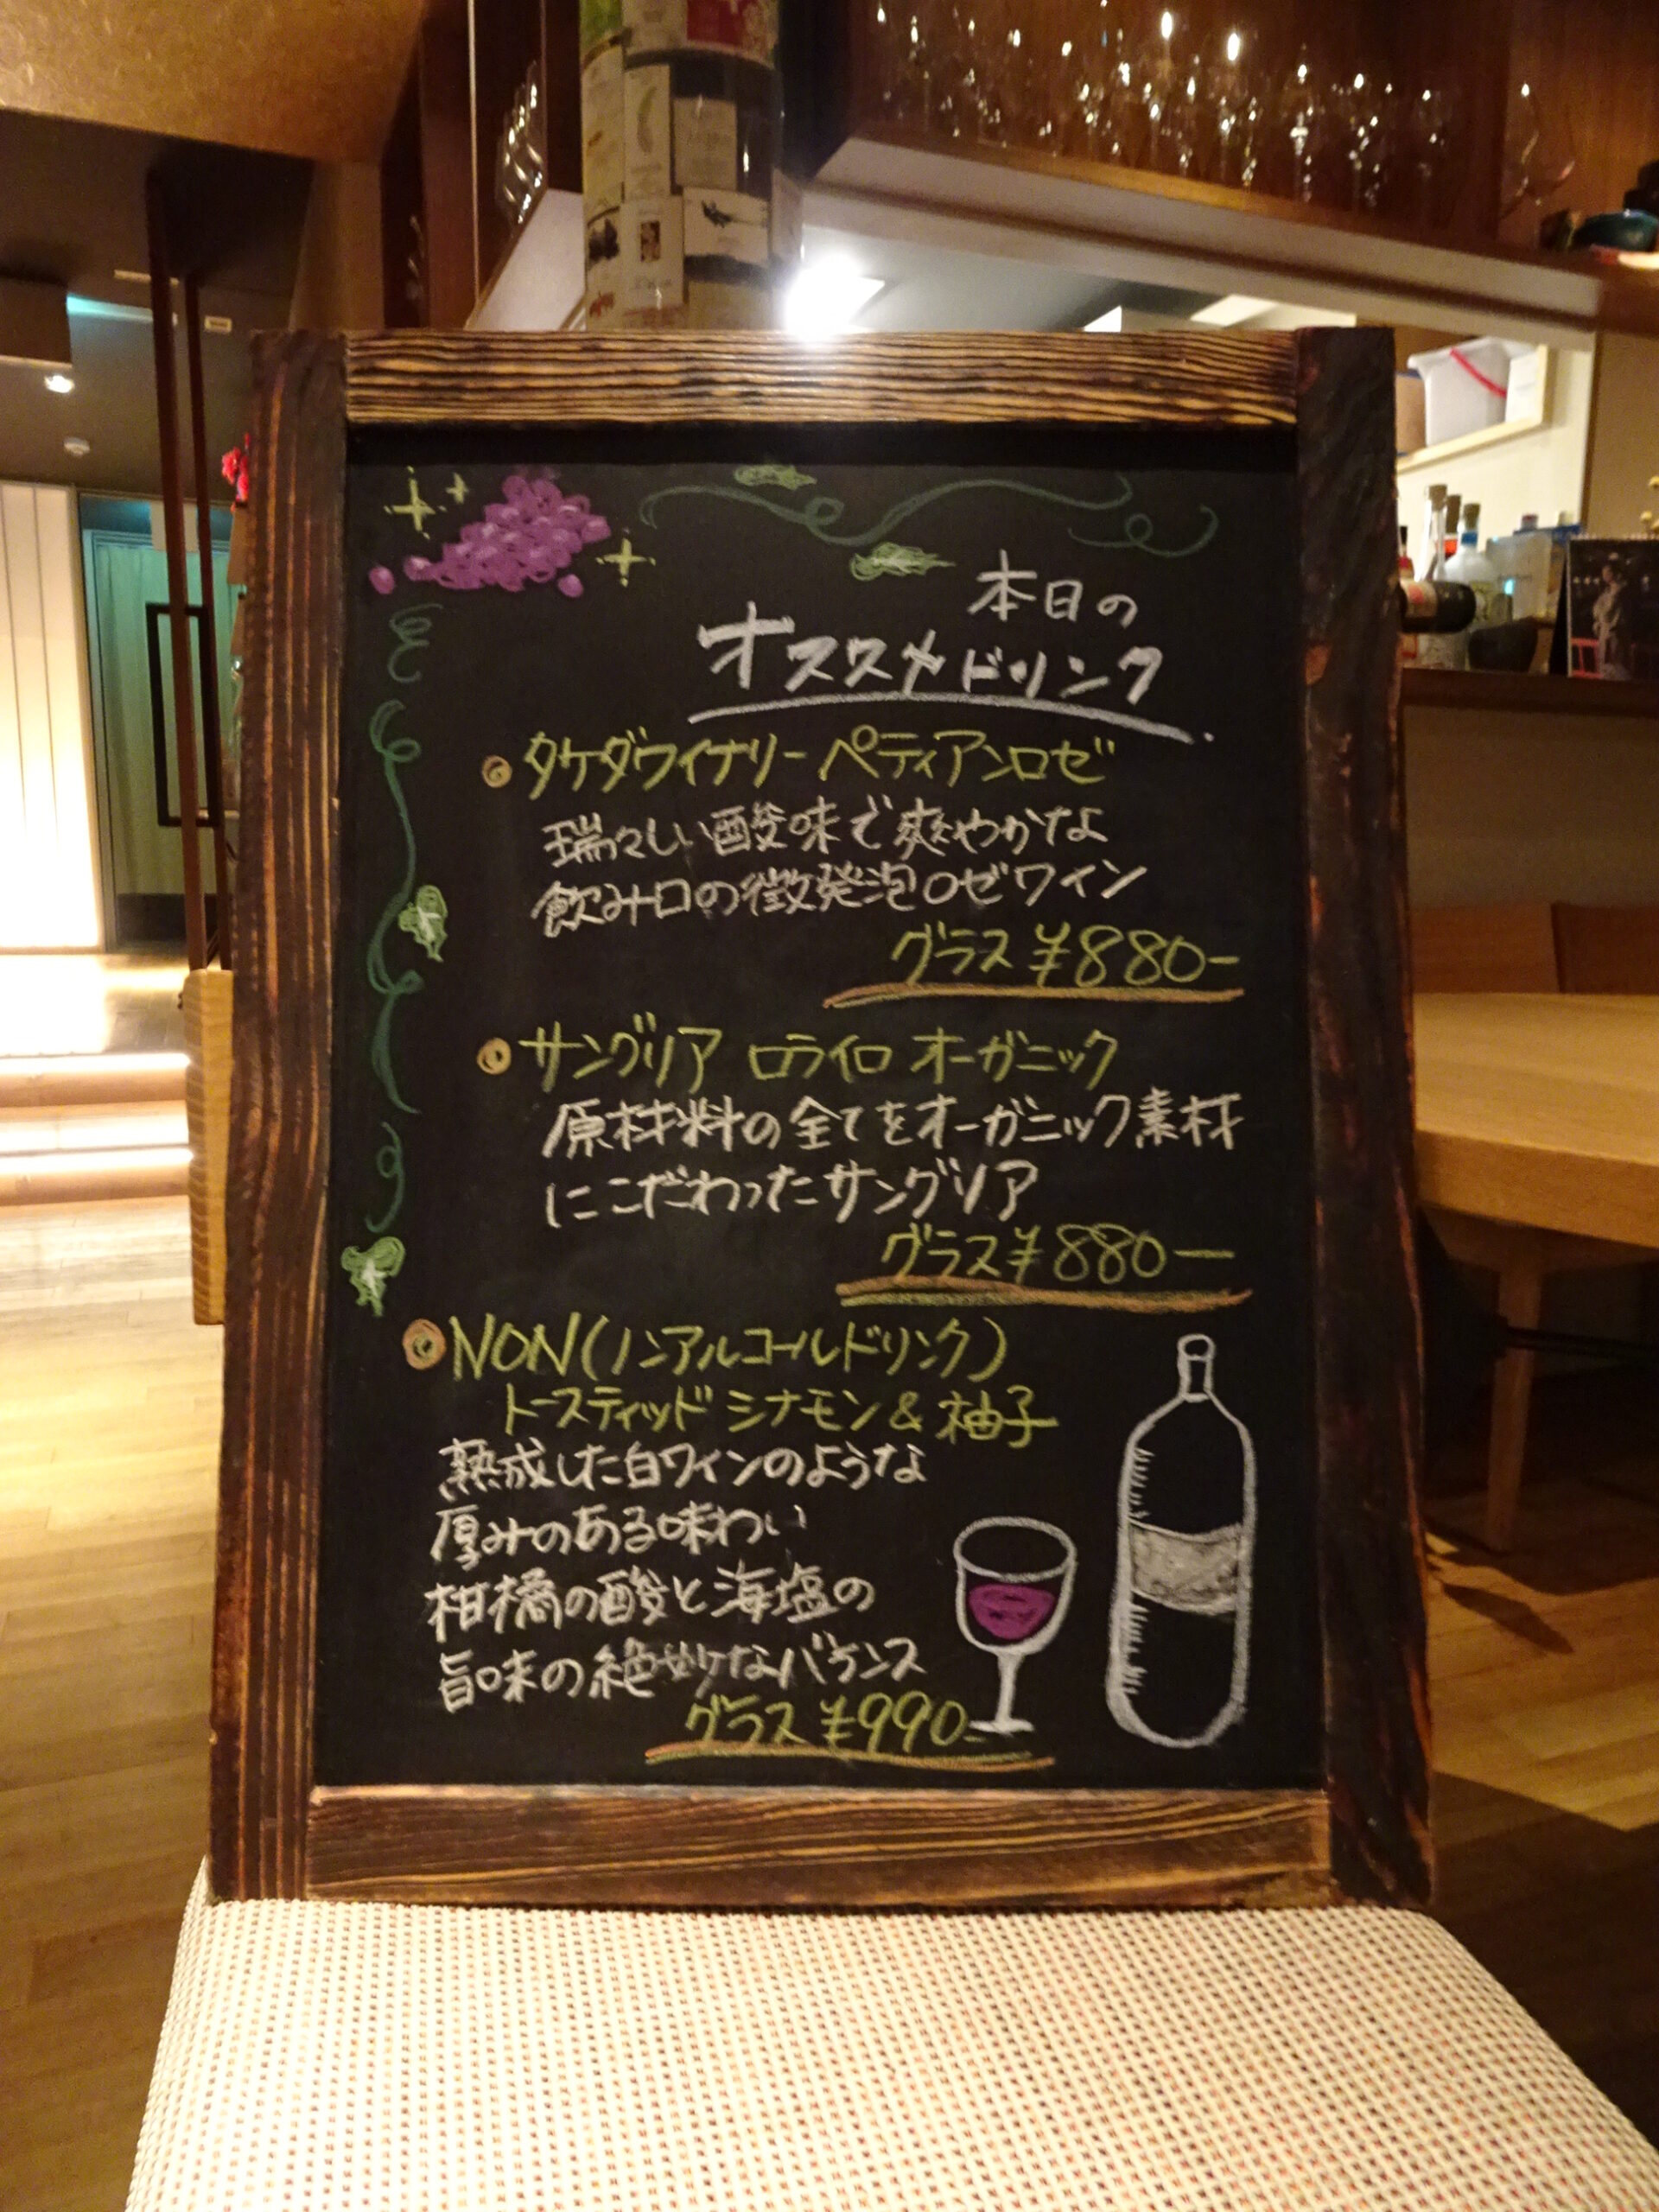 本日の
オススメドリンク
タケダワイナリーペティアンロゼ
瑞々しい酸味で爽やかな
飲み口の微発泡ロゼワイン
グラス ¥880-
サングリア ロライロ オーガニック
原材料の全てをオーガニック素材
にこだわったサングリア
グラス ¥880-
NON(ノンアルコールドリンク)
トースティッド シナモン & 柚子
熟成した白ワインのような
厚みのある味わい
柑橘の酸と海塩の
旨味の絶妙なバランス
グラス ¥990-